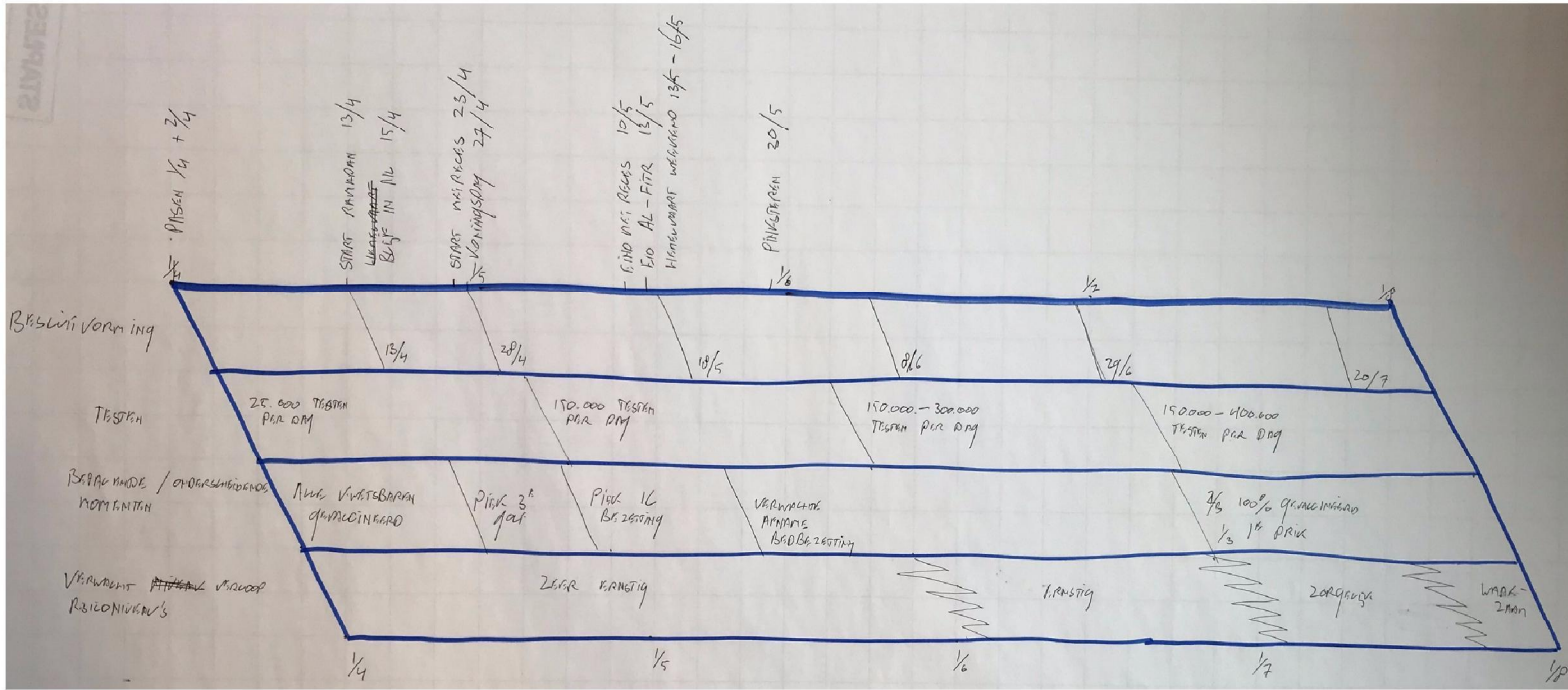 STAPLES
· PASEN 1/4 + 2/4
START RAMADAN 13/4
BLIJF IN NL 15/4
START MEIRECES 23/4
KONINGSDAG 27/4
EIND MEIRECES 10/5
EID AL-FITR 13/5
HEMELVAART WEEKEND 13/5 - 16/5
PINKSTEREN 30/5
1/4
1/5
1/6
1/7
1/8
BESLUITVORMING
13/4
28/4
18/5
8/6
29/6
20/7
TESTEN
25.000 TESTEN
PER DAG
150.000 TESTEN
PER DAG
150.000 - 300.000
TESTEN PER DAG
150.000 - 400.000
TESTEN PER DAG
BEPALENDE / ONDERSCHEIDENDE
MOMENTEN
ALLE KWETSBAREN
GEVACCINEERD
PIEK 3E
GOLF
PIEK IC
BEZETTING
VERWACHTE
AFNAME
BEDBEZETTING
2/3 100% GEVACCINEERD
1/3 1E PRIK
VERWACHT VERLOOP
RISICONIVEAU'S
ZEER ERNSTIG
ERNSTIG
ZORGELIJK
WAAK-
ZAAM
1/4
1/5
1/6
1/7
1/8